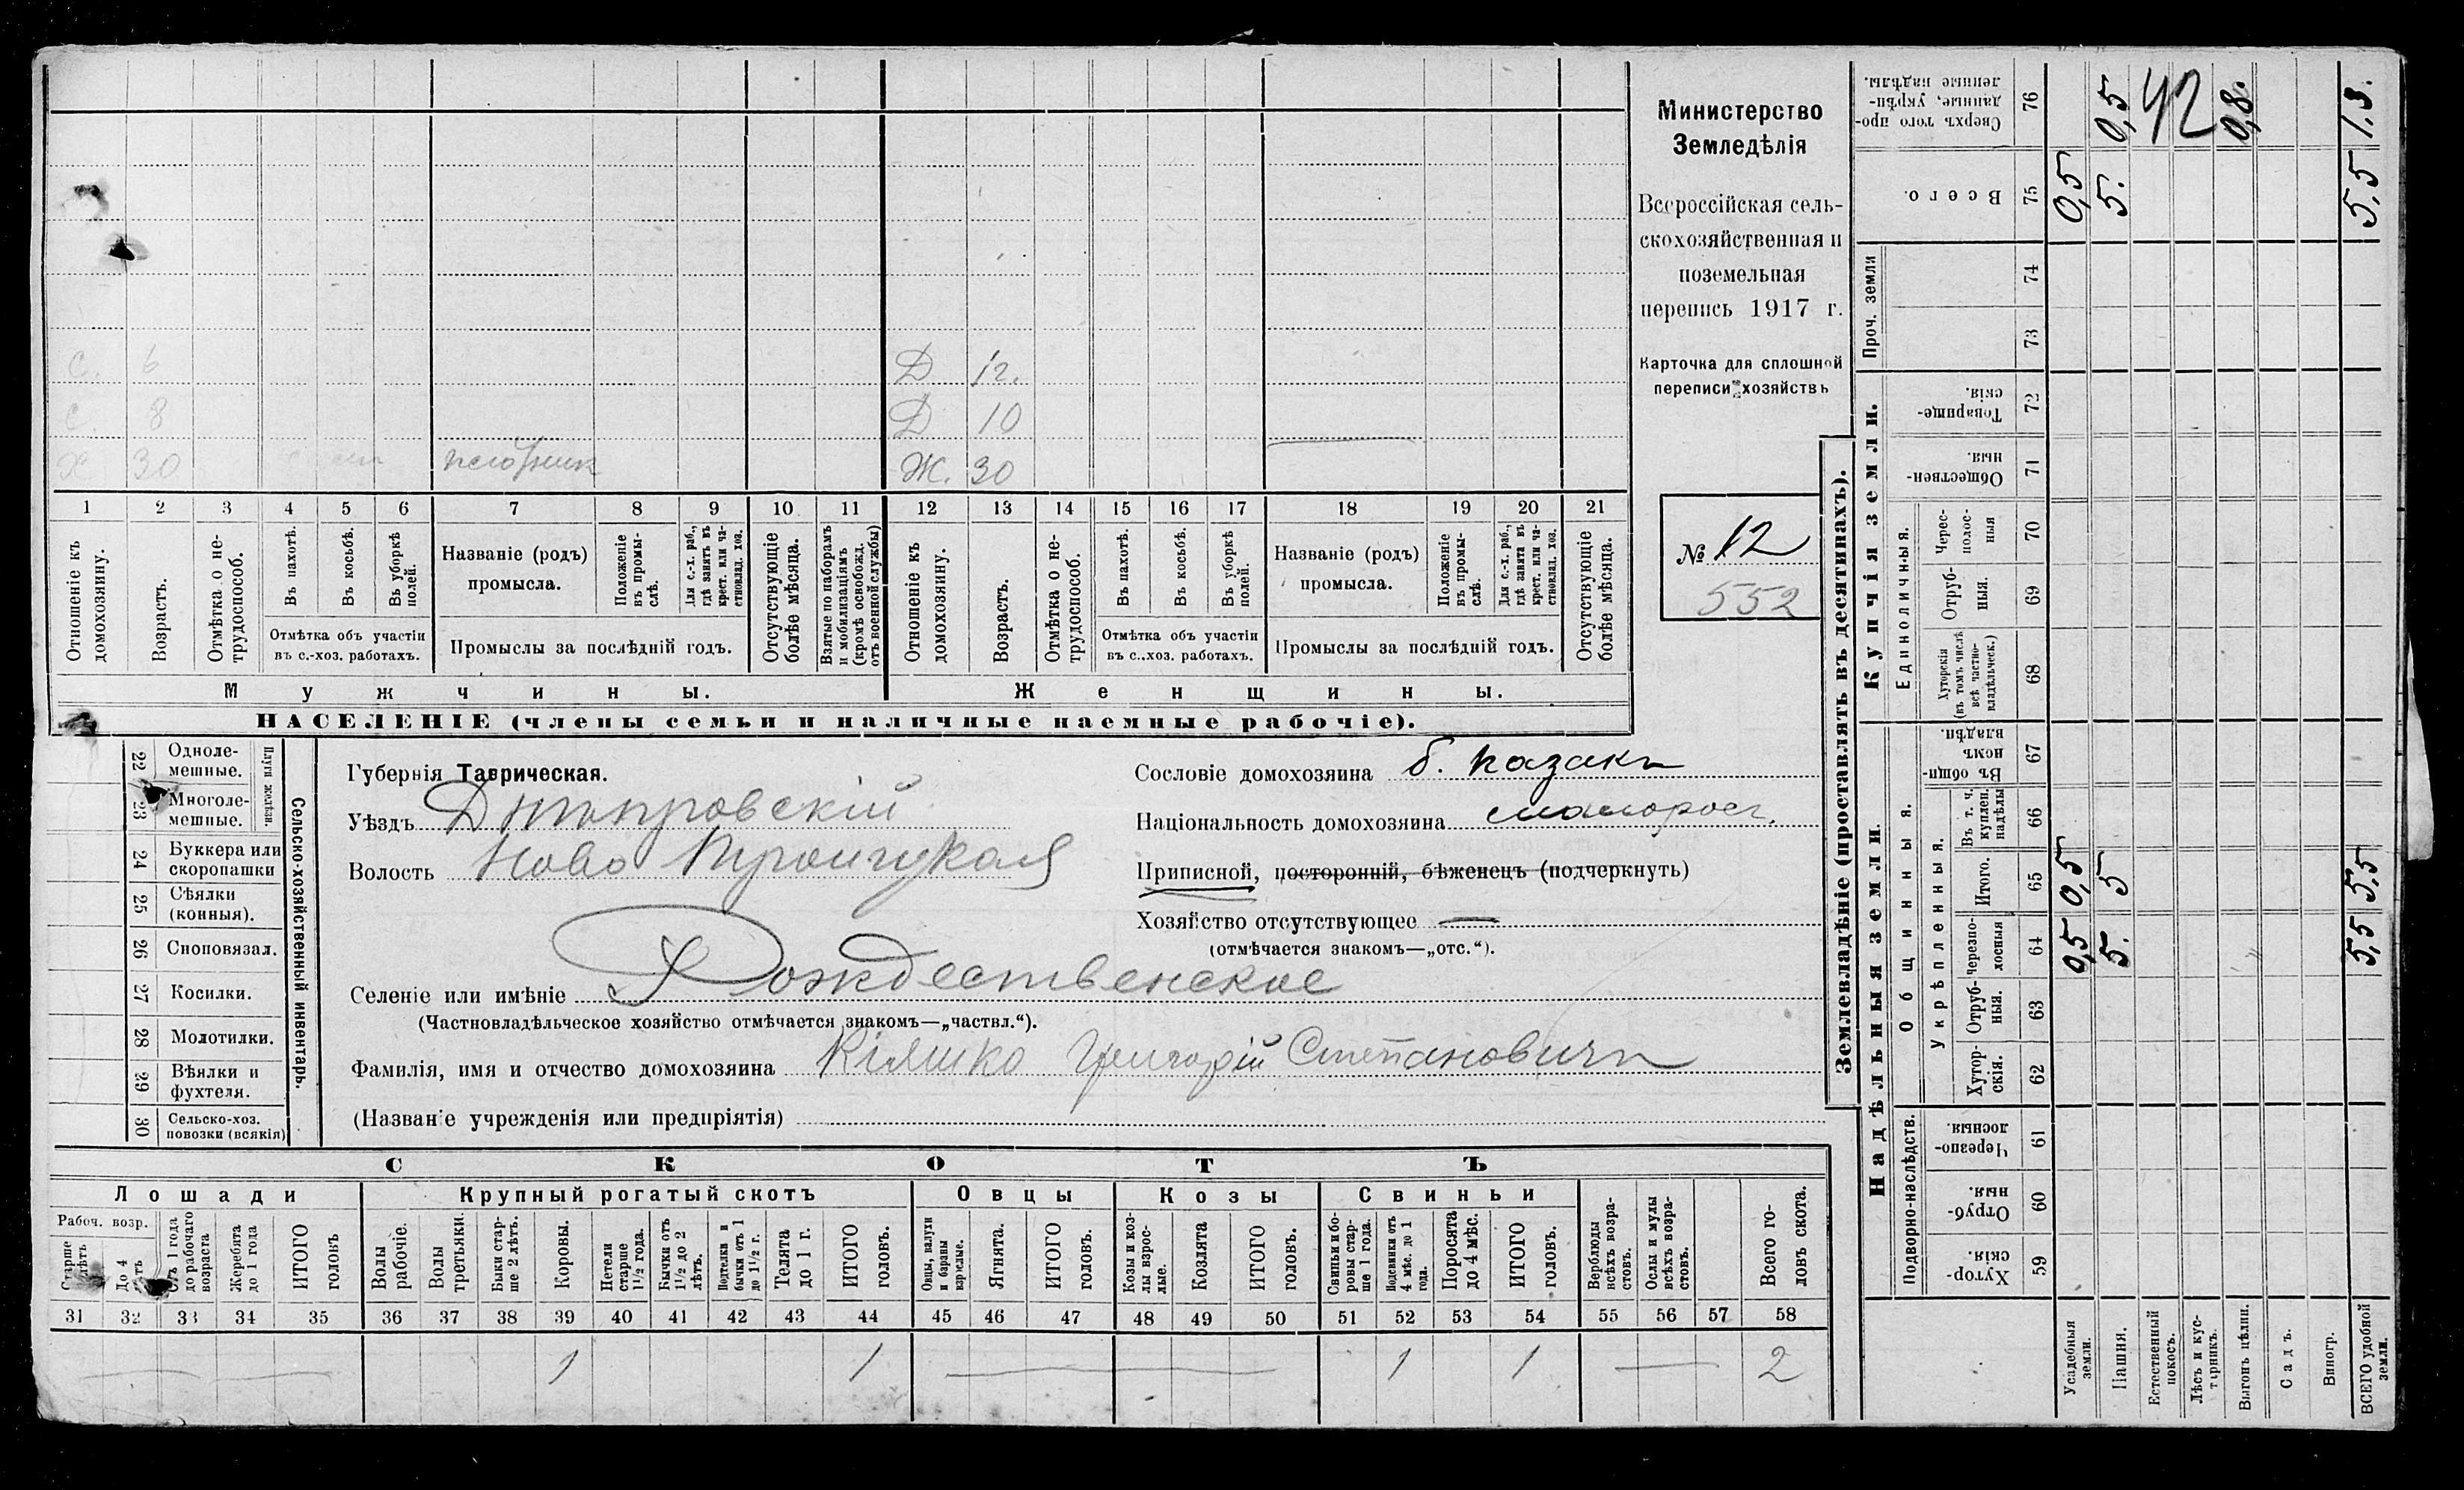 Министерство
Земледѣлія
Всероссійская сель-
скохозяйственная и
поземельная
перепись 1917 г.
Карточка для сплошной
переписи хозяйствъ
№ 12
552
С. 6
С. 8
Х 30 плотник
Д 12.
Д 10
Ж. 30
1 2 3 4 5 6 7 8 9 10 11 12 13 14 15 16 17 18 19 20 21
Отношеніе къ домохозяину.
Возрастъ.
Отмѣтка о не-трудоспособ.
Въ пахотѣ.
Въ косьбѣ.
Въ уборкѣ полей.
Отмѣтка объ участіи
въ с.-хоз. работахъ.
Названіе (родъ)
промысла.
Положеніе въ промы-слѣ.
Для с.-х. раб., гдѣ занятъ въ крест. или ча-стновлад. хоз.
Промыслы за послѣдній годъ.
Отсутствующіе болѣе мѣсяца.
Взятые по наборамъ и мобилизаціямъ (кромѣ освобожд. отъ военной службы)
Отношеніе къ домохозяину.
Возрастъ.
Отмѣтка о не-трудоспособ.
Въ пахотѣ.
Въ косьбѣ.
Въ уборкѣ полей.
Отмѣтка объ участіи
въ с.-хоз. работахъ.
Названіе (родъ)
промысла.
Положеніе въ промы-слѣ.
Для с.-х. раб., гдѣ занята въ крест. или ча-стновлад. хоз.
Промыслы за послѣдній годъ.
Отсутствующіе болѣе мѣсяца.
Мужчины.
Женщины.
НАСЕЛЕНІЕ (члены семьи и наличные наемные рабочіе).
22 Одноле-мешные.
23 Многоле-мешные.
Плуги желѣзн.
24 Буккера или скоропашки
25 Сѣялки (конныя).
26 Сноповязал.
27 Косилки.
28 Молотилки.
29 Вѣялки и фухтеля.
30 Сельско-хоз. повозки (всякія)
Сельско-хозяйственный инвентарь.
Губернія Таврическая.
Уѣздъ Днѣпровскій
Волость Ново Троицкая
Сословіе домохозяина б. казакъ
Національность домохозяина малоросс.
Приписной, посторонній, бѣженецъ (подчеркнуть)
Хозяйство отсутствующее —
(отмѣчается знакомъ—„отс.“).
Селеніе или имѣніе Рождественское
(Частновладѣльческое хозяйство отмѣчается знакомъ—„частвл.“).
Фамилія, имя и отчество домохозяина Кіяшко Григорій Степановичъ
(Названіе учрежденія или предпріятія)
СКОТЪ
Лошади
Крупный рогатый скотъ
Овцы
Козы
Свиньи
Рабоч. возр.
Старше лѣтъ
До 4 лѣтъ
Отъ 1 года до рабочаго возраста
Жеребята до 1 года
ИТОГО головъ
Волы рабочіе.
Волы третьяки.
Быки стар-ше 2 лѣтъ.
Коровы.
Нетели старше 1½ года.
Бычки отъ 1½ до 2 лѣтъ.
Подтелки и бычки отъ 1 до 1½ г.
Телята до 1 г.
ИТОГО головъ.
Овцы, валухи и бараны взрослые.
Ягнята.
ИТОГО головъ.
Козы и коз-лы взрос-лые.
Козлята
ИТОГО головъ.
Свиньи и бо-ровы стар-ше 1 года.
Подсвинки отъ 4 мѣс. до 1 года.
Поросята до 4 мѣс.
ИТОГО головъ.
Верблюды всѣхъ возра-стовъ.
Ослы и мулы всѣхъ возра-стовъ.
Всего го-ловъ скота.
31 32 33 34 35 36 37 38 39 40 41 42 43 44 45 46 47 48 49 50 51 52 53 54 55 56 57 58
— 1 1 — 1 1 — 2
Землевладѣніе (проставлять въ десятинахъ).
Купчія земли.
Надѣльныя земли.
Проч. земли
Единоличныя.
Общинныя.
Укрѣпленныя.
Подворно-наслѣдств.
76 Сверхъ того про-данные, укрѣп-ленные надѣлы.
75 Всего.
74
73
72 Товарище-скія.
71 Обществен-ныя.
70 Черес-полос-ныя
69 Отруб-ныя.
68 Хуторскія (въ томъ числѣ всѣ частно-владѣльческ.)
67 Въ общи-номъ владѣн.
66 Въ т. ч. куплен. надѣлы
65 Итого.
64 Черезпо-лосныя
63 Отруб-ныя.
62 Хутор-скія.
61 Черезпо-лосныя
60 Отруб-ныя.
59 Хутор-скія.
Усадебныя земли. 0,5 0,5 0,5
Пашня. 5. 5 5. 0,5
Естественный покосъ.
Лѣсъ и кус-тарникъ.
42
Выгонъ цѣлин. 0,8.
Садъ.
Виногр.
ВСЕГО удобной земли. 5,5 5,5 5,5 1.3.